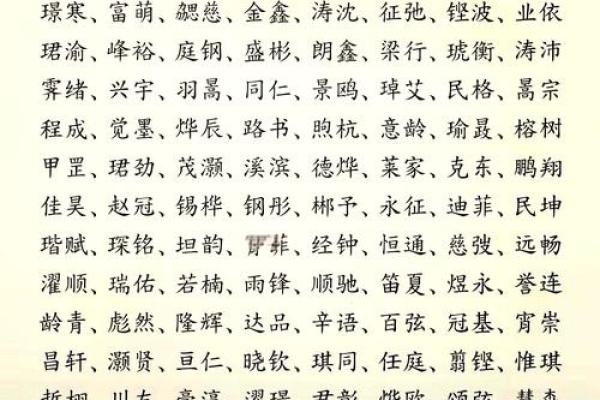 璟寒、富萌、勰慈、金鑫、涛沈、征弛、铿波、业依
珺渝、峰裕、庭钢、盛彬、朗鑫、梁行、琥衡、涛沛
霁绪、兴宇、羽暠、同仁、景鸥、琸艾、民格、暠宗
程成、觉墨、烨辰、路书、煦杭、意龄、瑜晸、榕树
甲罡、珺劲、茂灏、溪滨、德烨、莱家、克东、鹏翔
佳昊、赵冠、锡桦、钢彤、郴予、永征、迪菲、民坤
瑎赋、琛铭、坦韵、菲、经钟、恒通、慈弢、远畅
濯顺、瑞佑、若楠、雨锋、顺驰、笛夏、煜永、誉连
龄青、彪然、隆辉、达品、辛语、百弦、冠基、宵崇
昌轩、灏贤、亘仁、晓钦、琪同、任庭、翦铿、惟琪